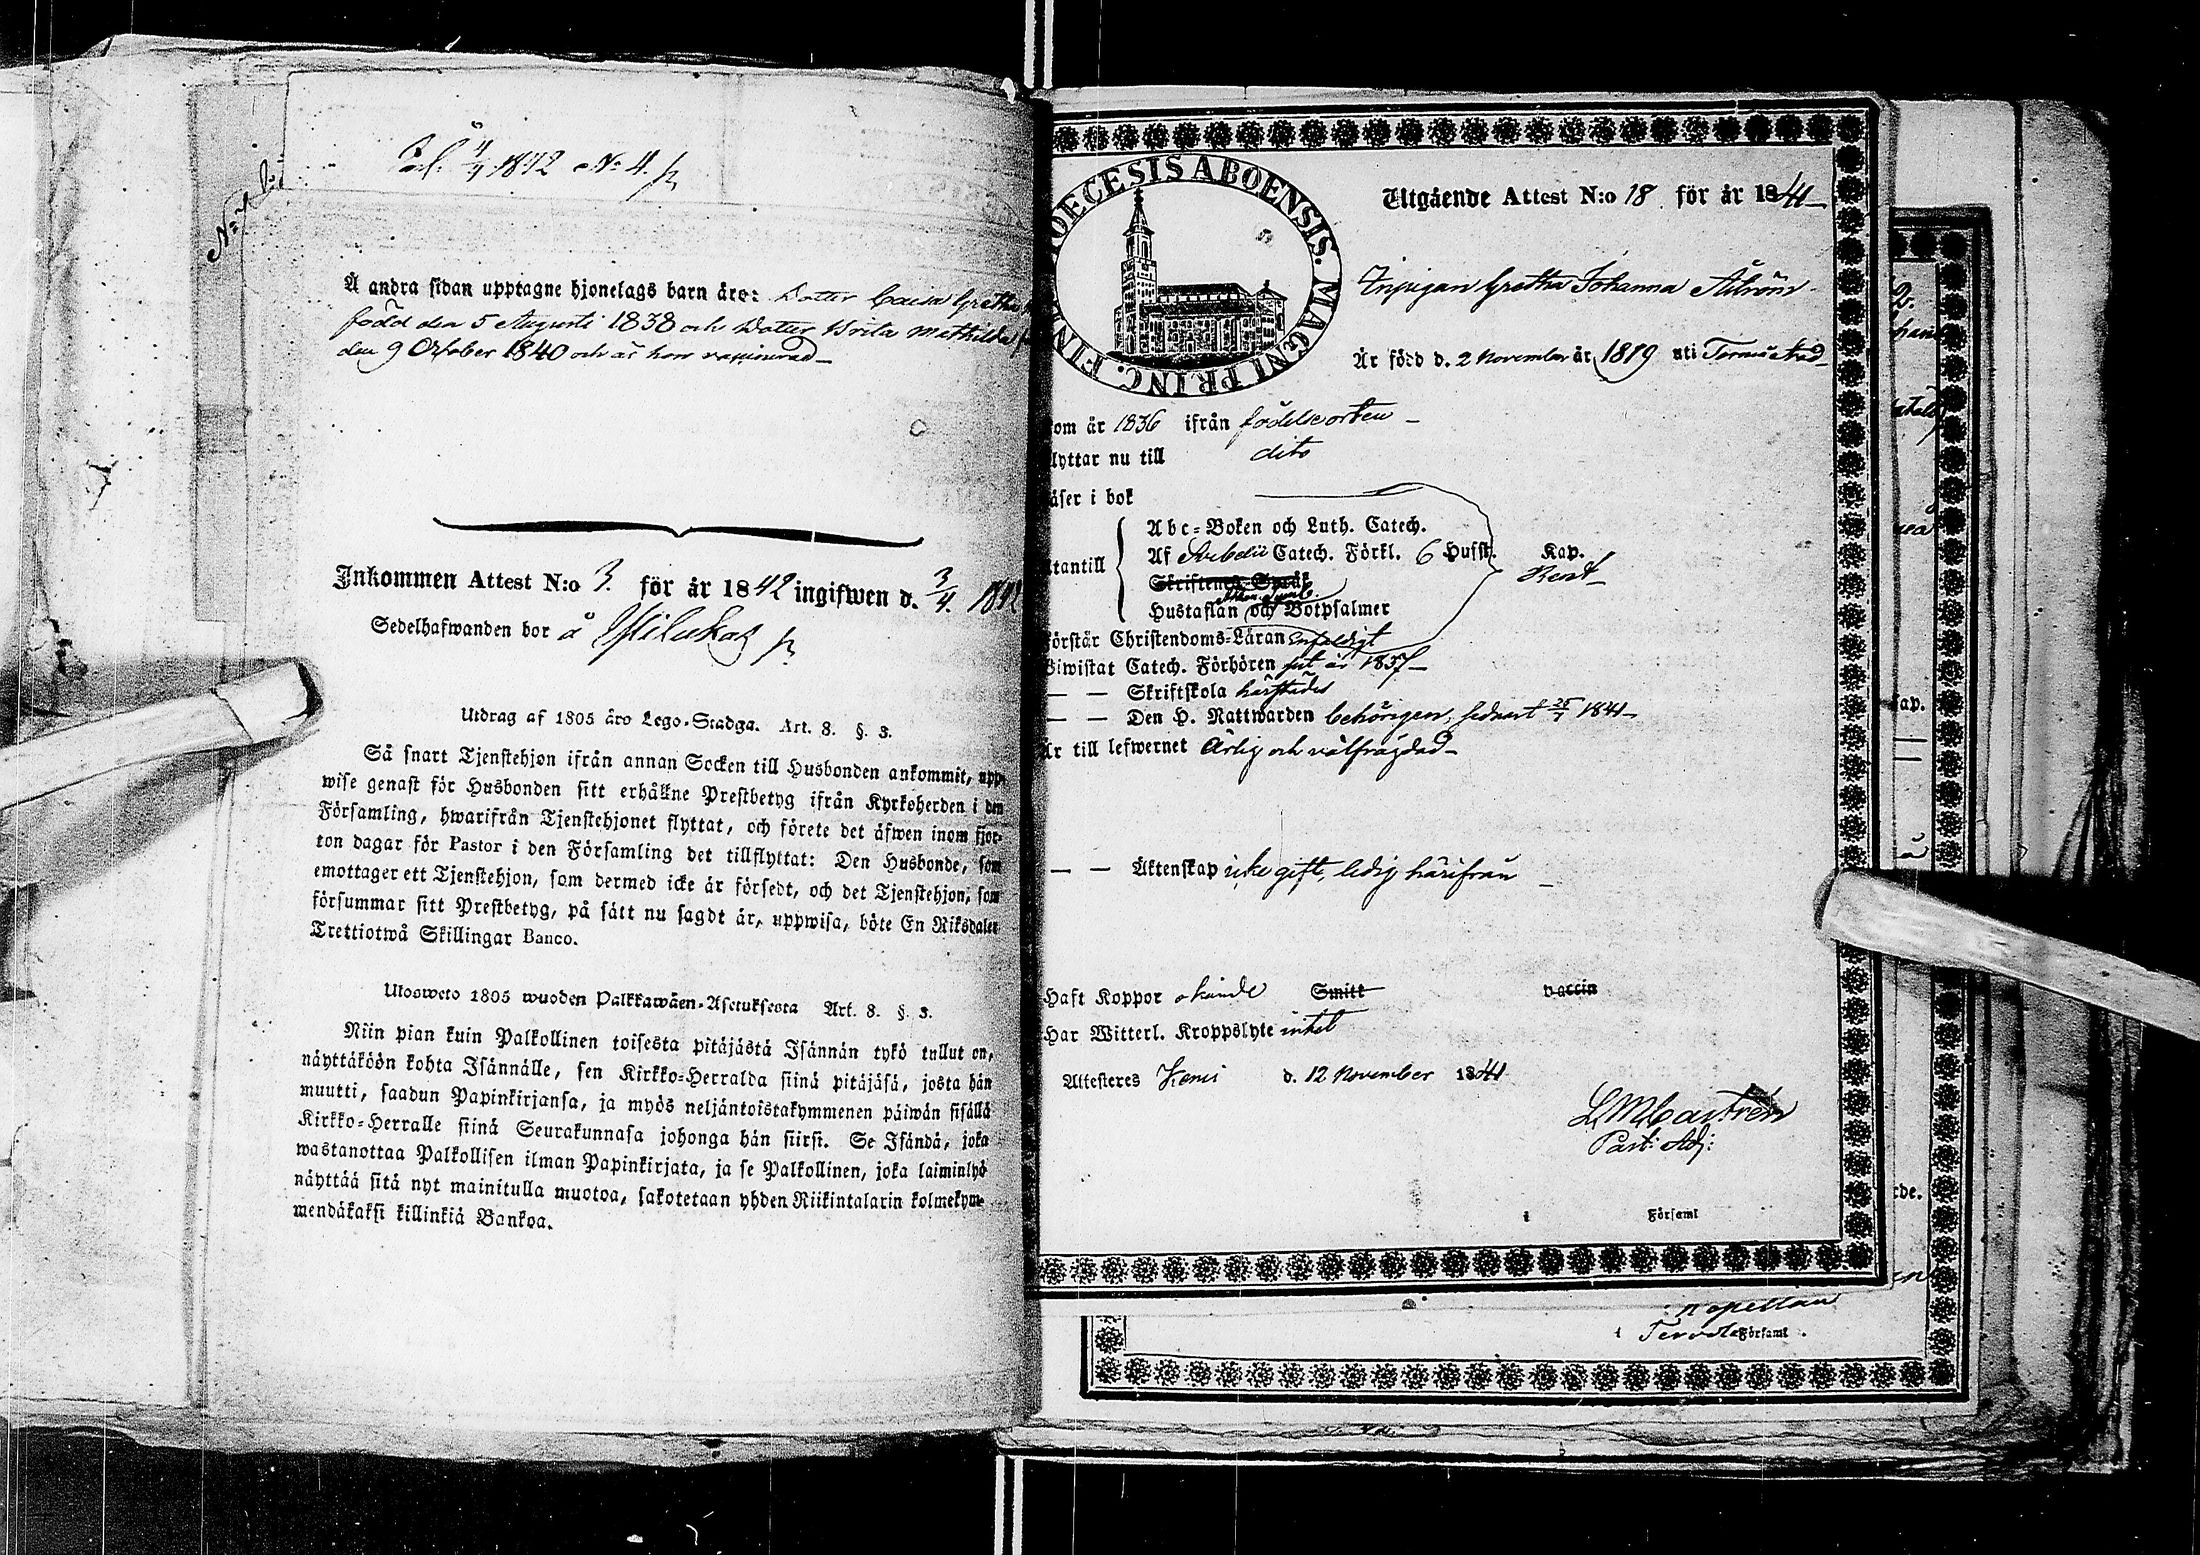 4/4 1842 No 4.
Å andra sidan upptagne hjonelags barn äro: Dotter Caisa Gretha
född den 5 Augusti 1838 och Dotter Brita Mathilda
den 9 October 1840 och är hon vaccinerad
Inkommen Attest N:o 3. för år 1842 ingifwen d. 3/4. 1842
Sedelhafwanden bor å
Utdrag af 1805 åro Lego-Stadga. Art. 8. §. 3.
Så snart Tjenstehjon ifrån annan Socken till Husbonden ankommit, upp-
wise genast för Husbonden sitt erhållne Prestbetyg ifrån Kyrkoherden i den
Församling, hwarifrån Tjenstehjonet flyttat, och förete det äfwen inom fjor-
ton dagar för Pastor i den Församling det tillflyttat: Den Husbonde, som
emottager ett Tjenstehjon, som dermed icke är försedt, och det Tjenstehjon, som
försummar sitt Prestbetyg, på sätt nu sagdt är, uppwisa, böte En Riksdaler
Trettiotwå Skillingar Banco.
Ulosweto 1805 wuoden Palkkawäen-Asetuksesta Art. 8. §. 3.
Niin pian kuin Palkollinen toisesta pitäjästä Isännän tykö tullut on,
näyttäköön kohta Isännälle, sen Kirkko-Herralda siinä pitäjäsä, josta hän
muutti, saadun Papinkirjansa, ja myös neljäntoistakymmenen päiwän sisällä
Kirkko-Herralle siinä Seurakunnasa johonga hän siirsi. Se Isändä, joka
wastanottaa Palkollisen ilman Papinkirjata, ja se Palkollinen, joka laiminlyö
näyttää sitä nyt mainitulla muotoa, sakotetaan yhden Riikintalarin kolmekym-
mendäkaksi killinkiä Bankoa.
DIOECESIS ABOENSIS. MAGNI PRINC. FIN
Utgående Attest N:o 18 för år 1841
Inpigan Gretha Johanna Åström
Är född d. 2 November år 1819 uti Torneå stad
om år 1836 ifrån födelseorten
lyttar nu till dito
äser i bok
Abc-Boken och Luth. Catech.
Af Svebelii Catech. Förkl. 6 Hufst. Kap.
tantill
Skriftenes Språk
Hustaflan och Botpsalmer
örstår Christendoms-Läran enfaldigt
Biwistat Catech. Förhören sist år 1837
— — Skriftskola härstädes
— — Den H. Nattwarden behörigen, sednast 25/7 1841
Är till lefwernet Ärlig och välfrägdad
— — Äktenskap icke gift, ledig härifrån
Haft Koppor okände Smitt vaccin
Har Witterl. Kroppslyte intet
Attesteres Kemi d. 12 November 1841
L M Castrén
Past: Adj:
i Församl
Kapellan
i Tervola Församl.